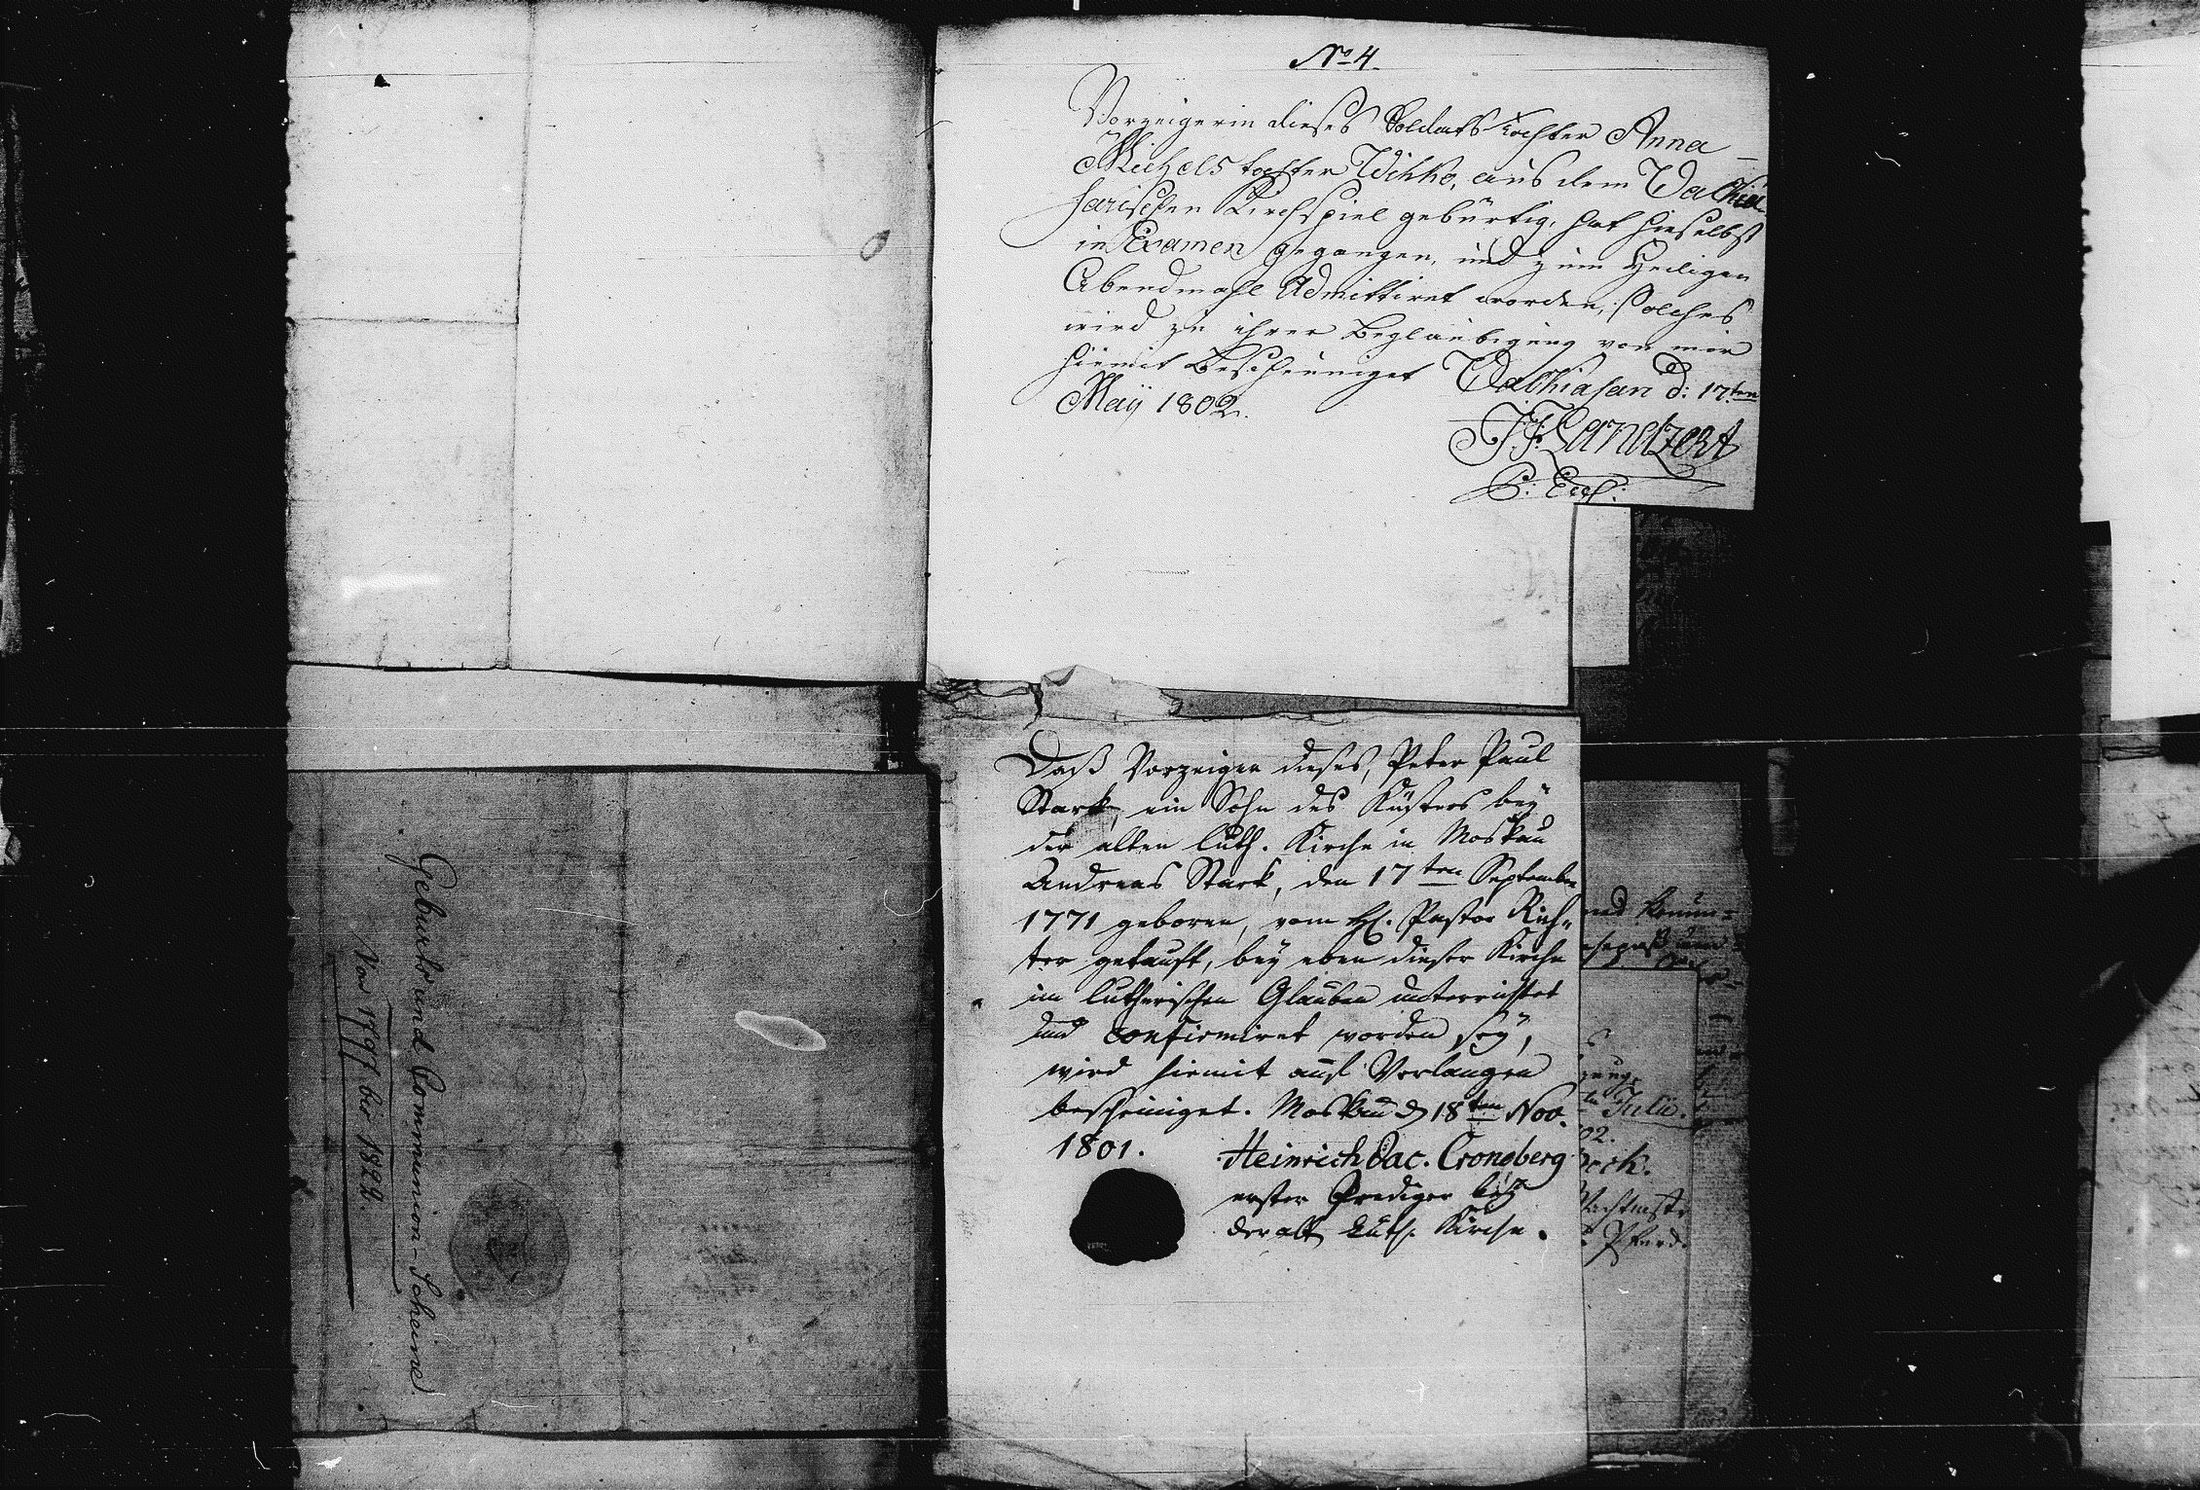 No 4.
Vorzeigerin dieses Soldats Tochter Anna
Michels tochter Wihko, aus dem Walkia-
sarischen Kirchspiel gebürtig, hat hieselbst
in Examen gegangen, und zum Heiligen
Abendmahl Admittiret worden, solches
wird zu ihrer Beglaubigung von mir
hiemit bescheiniget Walkiasari d: 17ten
Maÿ 1802.
Landzert
P: Eccl:
Daß Vorzeiger dieses, Peter Paul
Stark, ein Sohn des Küsters bey
der alten luth. Kirche in Moskau
Andreas Stark, den 17ten September
1771 geboren, vom H. Pastor Rich-
ter getauft, bey eben dieser Kirche
im lutherischen Glauben unterrichtet
und confirmiret worden sey,
wird hiemit auf Verlangen
bescheiniget. Moskau d 18ten Nov.
1801.
Heinrich Jac. Croneberg
erster Prediger bey
der alt Luth. Kirche.
Geburts und Communion-Scheine
Von 1797 bis 1822.
und
Julii.
02.
Pferd.